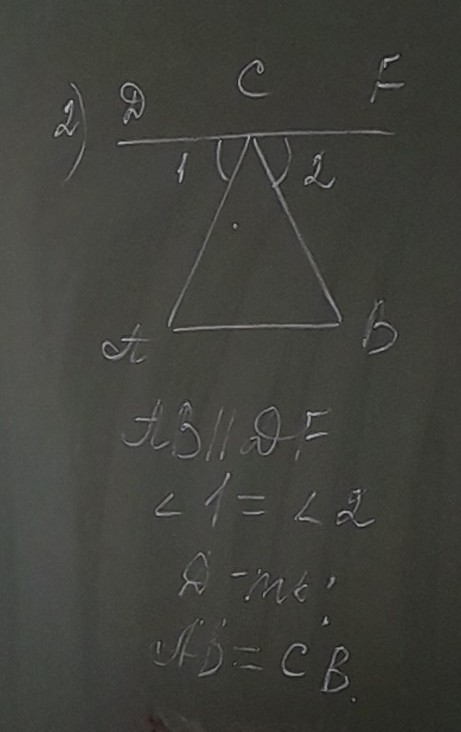 2) D C F
1 2
A B
AB || DF
< 1 = < 2
D-ть:
AB = CB.